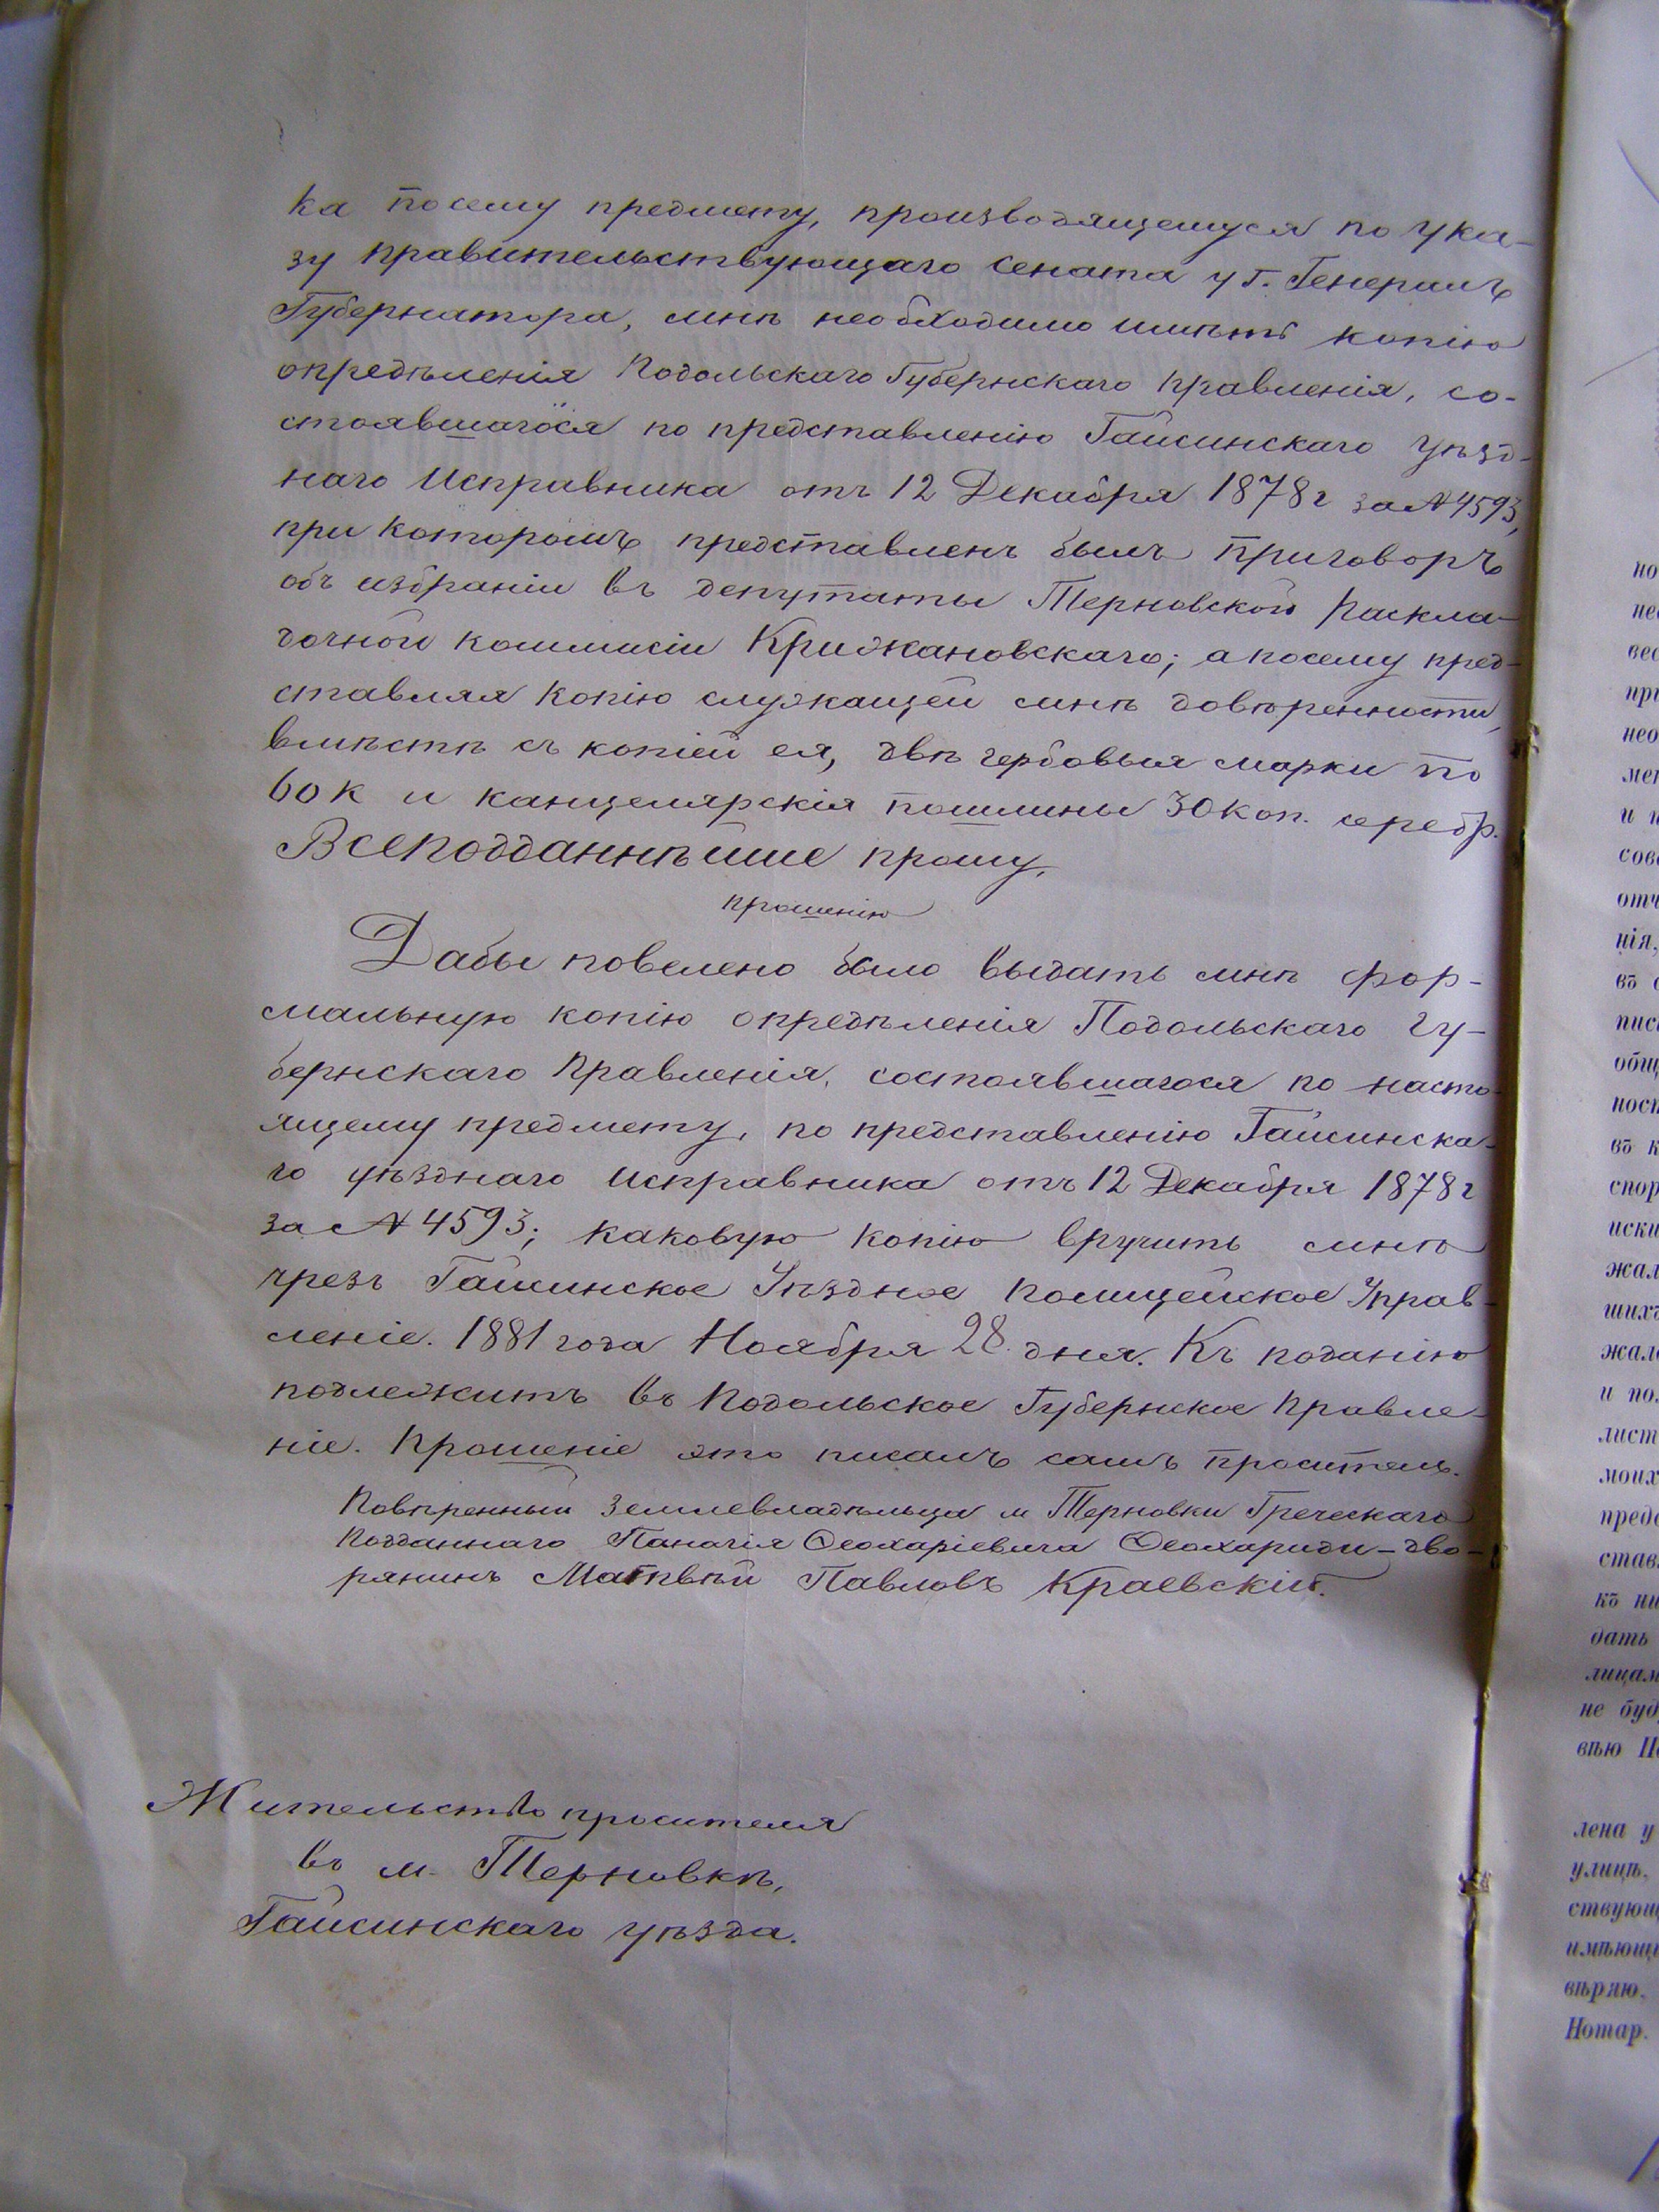 ка посему предмету, производящемуся по ука-
зу Правительствующаго Сената у Г. Генералъ
Губернатора, мнѣ необходимо имѣть копію
опредѣленія Подольскаго Губернскаго Правленія, со-
стоявшагося по представленію Гайсинскаго Уѣзд-
наго Исправника отъ 12 Декабря 1878 г за № 4593,
при которомъ представленъ былъ приговоръ
объ избраніи въ депутаты Терновской Раскла-
дочной коммисіи Крижановскаго; а посему пред-
ставляя копію служащей мнѣ довѣренности,
вмѣстѣ съ копіей ея, двѣ гербовыя марки по
60 к и канцелярскія пошлины 30 коп. серебр.
Всеподданнѣйше прошу,
прошенію
Дабы повелено было выдать мнѣ фор-
мальную копію опредѣленія Подольскаго Гу-
бернскаго Правленія, состоявшагося по насто-
ящему предмету, по представленію Гайсинска-
го уѣзднаго Исправника отъ 12 Декабря 1878 г
за № 4593; каковую копію вручить мнѣ
чрезъ Гайсинское Уѣздное Полицейское Управ-
леніе. 1881 года Ноября 28 дня. Къ поданію
подлежитъ въ Подольское Губернское Правле-
ніе. Прошеніе это писалъ самъ проситель.
Повѣренный землевладѣльца м Терновки Греческаго
Подданнаго Панагія Ѳеохаріевича Ѳеохариди - дво-
рянинъ Матвѣй Павловъ Краевскій.
Жительство просителя
въ м. Терновкѣ,
Гайсинскаго уѣзда.
но
вес
при
нео
мет
и п
сове
отч
нія,
въ с
пис
общ
ност
въ к
спор
иски
жал
шихъ
жал
и по
лист
моих
предс
став
къ ни
дать
лицам
не буд
лена у
улицѣ,
ствующ
имѣющ
вѣряю,
Нотар.